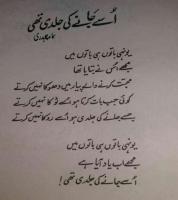 اُسے جانے کی جلدی تھی
یونہی باتوں ہی باتوں میں
مجھے اُس نے بتایا تھا
محبت کرنے والے پیار میں دھوکا نہیں کرتے
کوئی جب بات کرتا ہو اُسے ٹوکا نہیں کرتے
جسے جانے کی جلدی ہو اُسے روکا نہیں کرتے
یونہی باتوں ہی باتوں میں
مجھے اب یاد آیا ہے
اُسے جانے کی جلدی تھی!